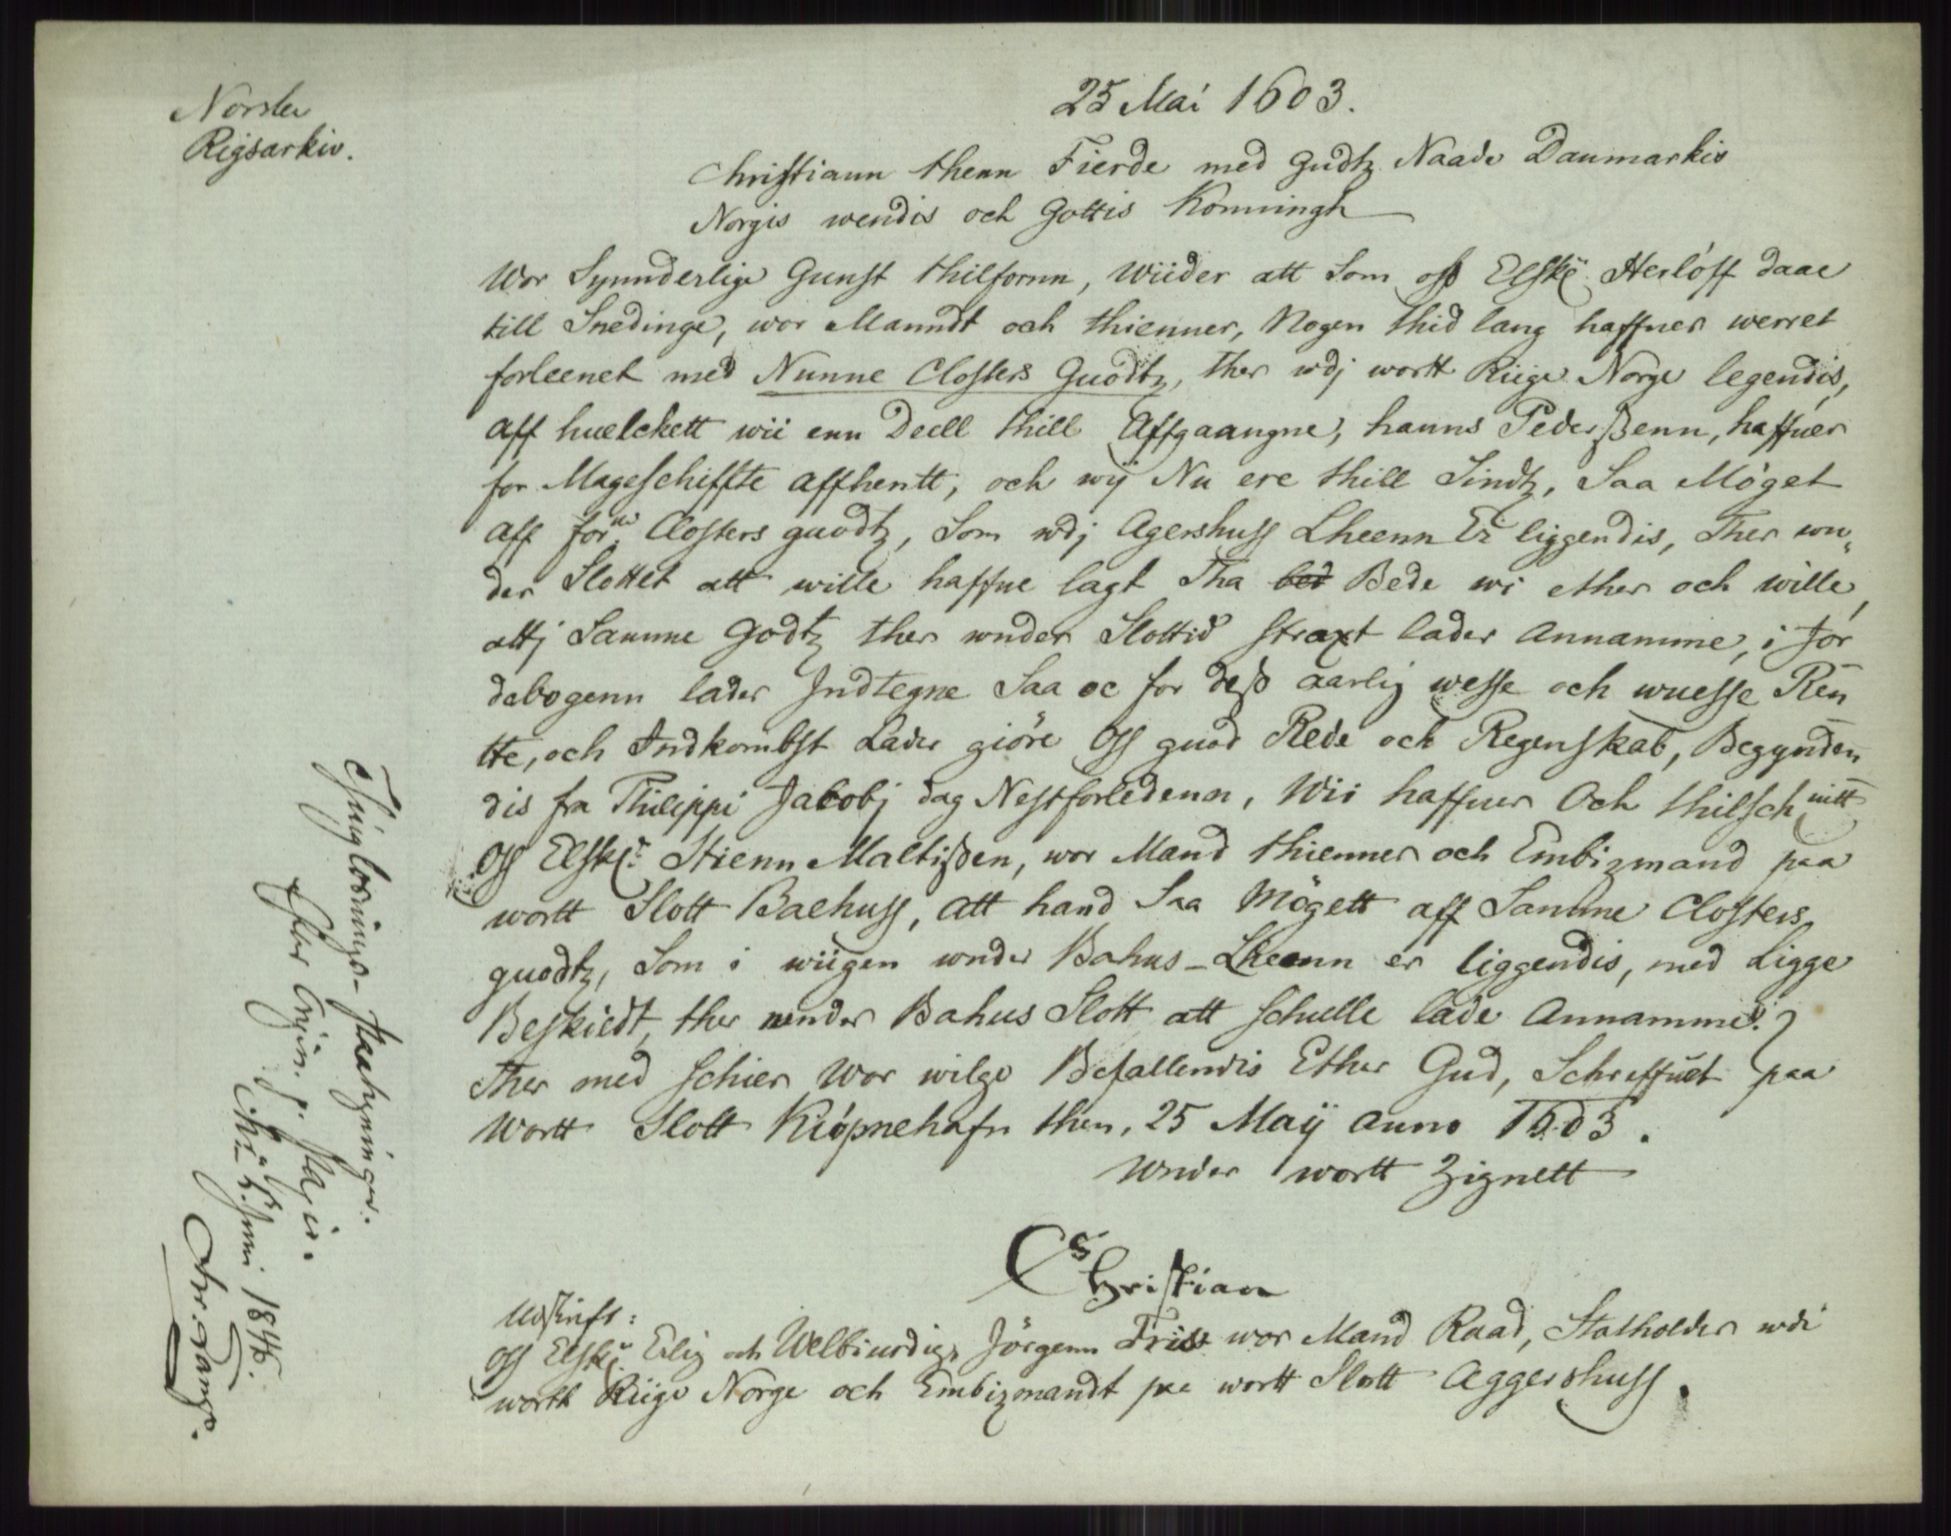 Norske
Rigsarkiv.
25 Mai 1603.
Christiann thenn Fierde med Gudtz Naade Danmarkis
Norgis wendis och Gottis Konningh
Wor Synnderlige Gunst thilfornn, Wiider att Som oss Elskē Herlöff daae
till Snedinge, wor Manndt och thienner, Nogen thid lang haffuer werret
forleenet med Nunne Closters Guodtz, ther wdj wortt Riige Norge legendis,
aff huelckett wii enn Deell thill Affgaangne, hanns Pederssenn, haffuer
for Mageschiffte affhentt, och wij Nu ere thill Sindtz, Saa Møget
aff forne Closters guodtz, Som wdj Agershuss Lheenn Er liggendis, Ther wn„
der Slottet att wille haffue lagt Tha bed Bede wi ether och wille,
attj Samme Godtz ther wnder Slottid straxt lader Annamme, i Jor
debogenn lader Indtegne Saa oc for dess aarlig wesse och wuesse Ren
tte, och Indkombst Lader giöre Oss guod Rede och Regenskab, Begynden
dis fra Philippi Jacobj dag Nestforledenn, Wii haffuer Och thilschriffuitt
Oss Elskr Stienn Maltissen, wor Mand thienner och Embizmand paa
wortt Slott Baehuss, att hand Saa Mögett aff Samme Closters
guodtz, Som i wiigen wnder Bahus-Lheenn er liggendis, med Ligge
Beskiedt, ther wnder Bahus Slott att schulle lade Annamme.
Ther med schier Wor wilge Befallendis Ether Gud, Schreffuet paa
Wortt Slott Kiøpnehafn then, 25 Maij Anno 1603.
Wnder wortt Zignett
Christian
Udskrift:
Oss Elskē Erlig och Welbiurdige Jörgenn Friss wor Mand Raad, Statholder wdi
wortt Riige Norge och Embizmandt paa wortt Slott Aggershuss.
Thinglysnings-
Efter Orig. p. Papir.
Ch.a 4 Juni 1846.
Chr. Lange.